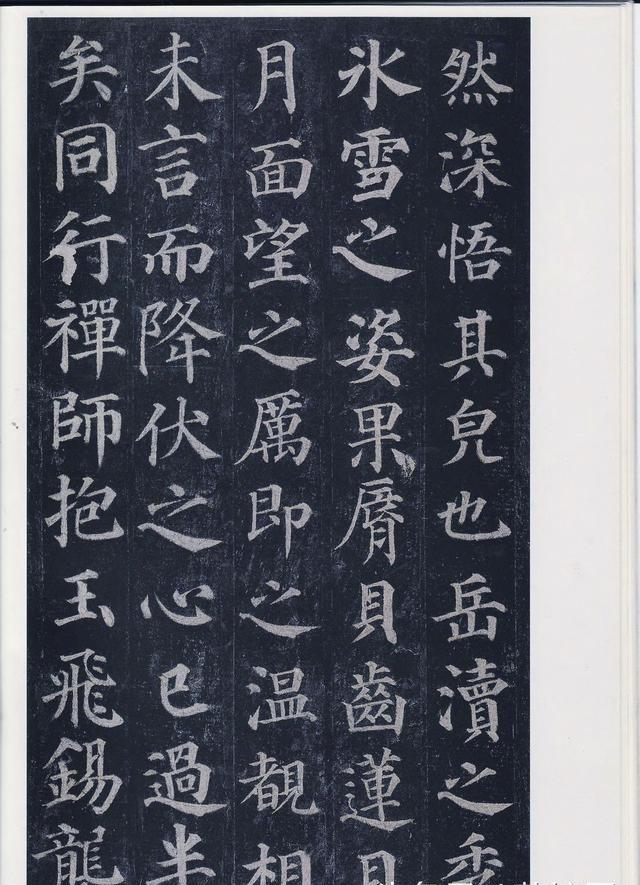 然深悟其皃也岳瀆之秀
氷雪之姿果脣貝齒蓮目
月面望之厲即之温覩相
未言而降伏之心已過半
矣同行禪師抱玉飛錫